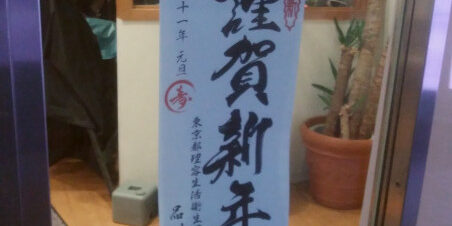 謹賀新年
十一年 元旦
寿
東京都理容生活衛生
品